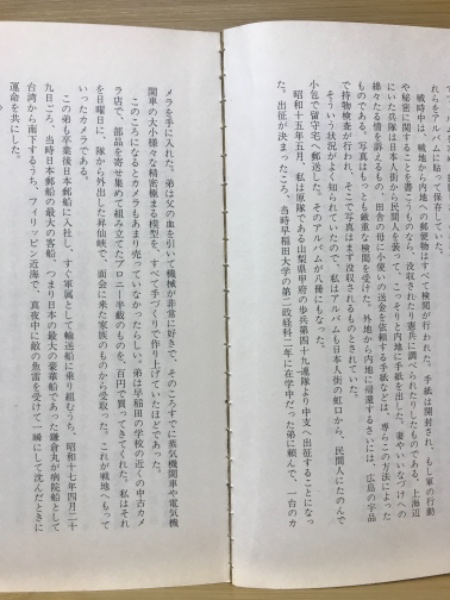 れらをアルバムに貼って保存していた。
戦時中は、戦地から内地への郵便物はすべて検閲が行われた。手紙は開封され、もし軍の行動
や秘密に関することを書こうものなら、没収されたり憲兵に調べられたりしたものである。上海辺
にいた兵隊は日本人街から民間人を装って、こっそりと内地に手紙を出した。妻やいいなづけへの
綿々たる情を訴えるもの、田舎の母に小使いの送金を依頼する手紙などは、専らこの方法によった
ものである。写真はもっとも厳重な検閲を受けた。外地から内地に帰還するさいには、広島の宇品
で持物検査が行われ、そこで写真はまず没収されるものとされていた。
そういう状況がよく知られていたので、私はアルバムも日本人街の虹口から、民間人にたのんで
小包で留守宅へ郵送した。そのアルバムが八冊にもなった。
昭和十五年五月、私は原隊である山梨県甲府の歩兵第四十九連隊より中支へ出征することになっ
た。出征が決まったころ、当時早稲田大学の第二政経科二年に在学中だった弟に頼んで、一台のカ
メラを手に入れた。弟は父の血を引いて機械が非常に好きで、そのころすでに蒸気機関車や電気機
関車の大小様々な精密極まる模型を、すべて手づくりで作り上げていたほどであった。
このころになるとカメラもあまり売っていなかったらしい。弟は早稲田の学校の近くの中古カメ
ラ店で、部品を寄せ集めて組み立てたブロニー半截のものを、百円で買ってきてくれた。私はそれ
を日曜日に、隊から外出した昇仙峡で、面会に来た家族のものから受取った。これが戦地へもって
いったカメラである。
この弟も卒業後日本郵船に入社し、すぐ軍属として輸送船に乗り組むうち、昭和十七年四月二十
九日ごろ、当時日本郵船の最大の客船、つまり日本の最大の豪華船であった鎌倉丸が病院船として
台湾から南下するうち、フィリッピン近海で、真夜中に敵の魚雷を受けて一瞬にして沈んだときに
運命を共にした。